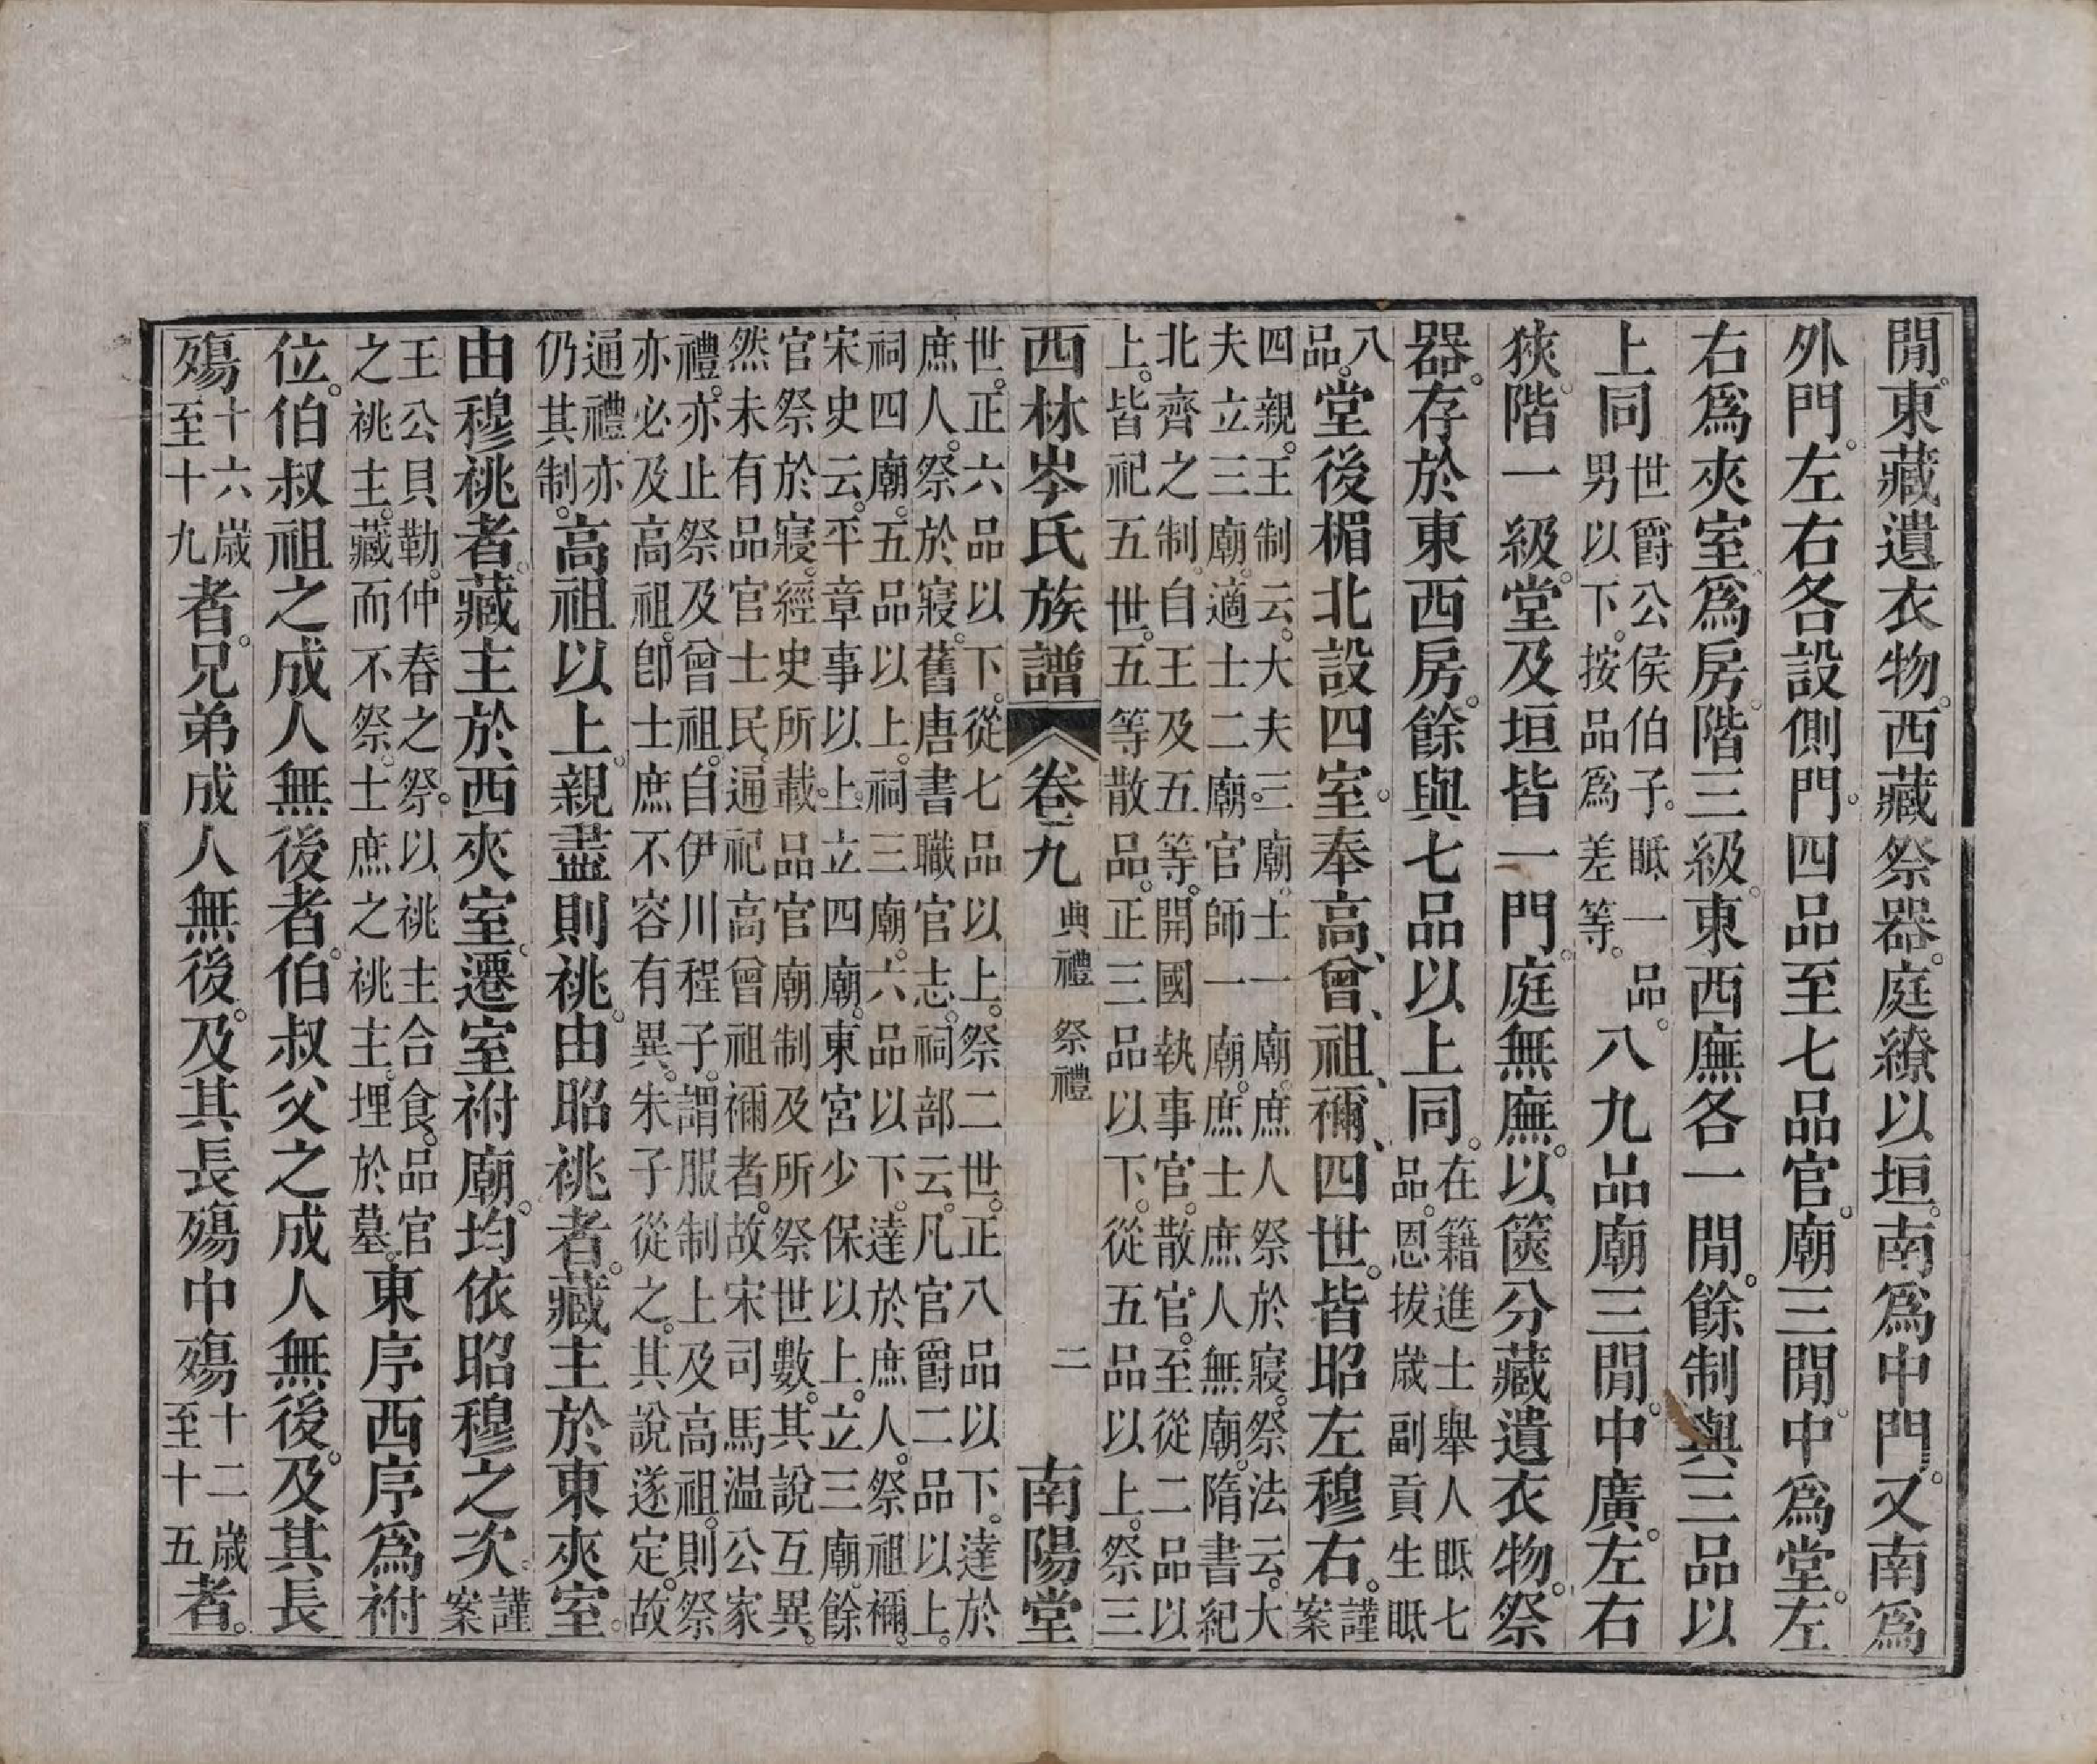 閒。東藏遺衣物。西藏祭器。庭繚以垣。南爲中門。又南爲
外門。左右各設側門。四品至七品官。廟三閒。中爲堂。左
右爲夾室。爲房。階三級。東西廡各一閒。餘制與三品以
上同世爵公侯伯子。眡一品。
男以下。按品爲差等。八九品廟三閒。中廣。左右
狹。階一級。堂及垣皆一門。庭無廡。以篋分藏遺衣物。祭
器。存於東西房。餘與七品以上同。在籍進士舉人眡七
品。恩拔歲副貢生眡
八
品。堂後楣北設四室。奉高、曾、祖、禰、四世。皆昭左穆右。謹
案
四親。王制云。大夫三廟。士一廟。庶人祭於寢。祭法云。大
夫立三廟。適士二廟。官師一廟。庶士庶人無廟。隋書紀
北齊之制。自王及五等。開國執事官。散官。至從二品以
上。皆祀五世。五等散品。正三品以下。從五品以上。祭三
西林岑氏族譜 卷九 典禮 祭禮 二 南陽堂
世。正六品以下。從七品以上。祭二世。正八品以下。達於
庶人。祭於寢。舊唐書職官志。祠部云。凡官爵二品以上。
祠四廟。五品以上。祠三廟。六品以下。達於庶人。祭祖禰。
宋史云。平章事以上。立四廟。東宮少保以上。立三廟。餘
官祭於寢。經史所載。品官廟制及所祭世數。其說互異。
然未有品官士民。通祀高曾祖禰者。故宋司馬溫公家
禮。亦止祭及曾祖。自伊川程子。謂服制上及高祖。則祭
亦必及高祖。卽士庶不容有異。朱子從之。其說遂定。故
通禮亦
仍其制。高祖以上。親盡則祧。由昭祧者。藏主於東夾室。
由穆祧者。藏主於西夾室。遷室祔廟。均依昭穆之次。謹
案
王公貝勒。仲春之祭。以祧主合食。品官
之祧主。藏而不祭。士庶之祧主。埋於墓。東序西序爲祔
位。伯叔祖之成人無後者。伯叔父之成人無後。及其長
殤十六歲
至十九者。兄弟成人無後。及其長殤中殤十二歲
至十五者。